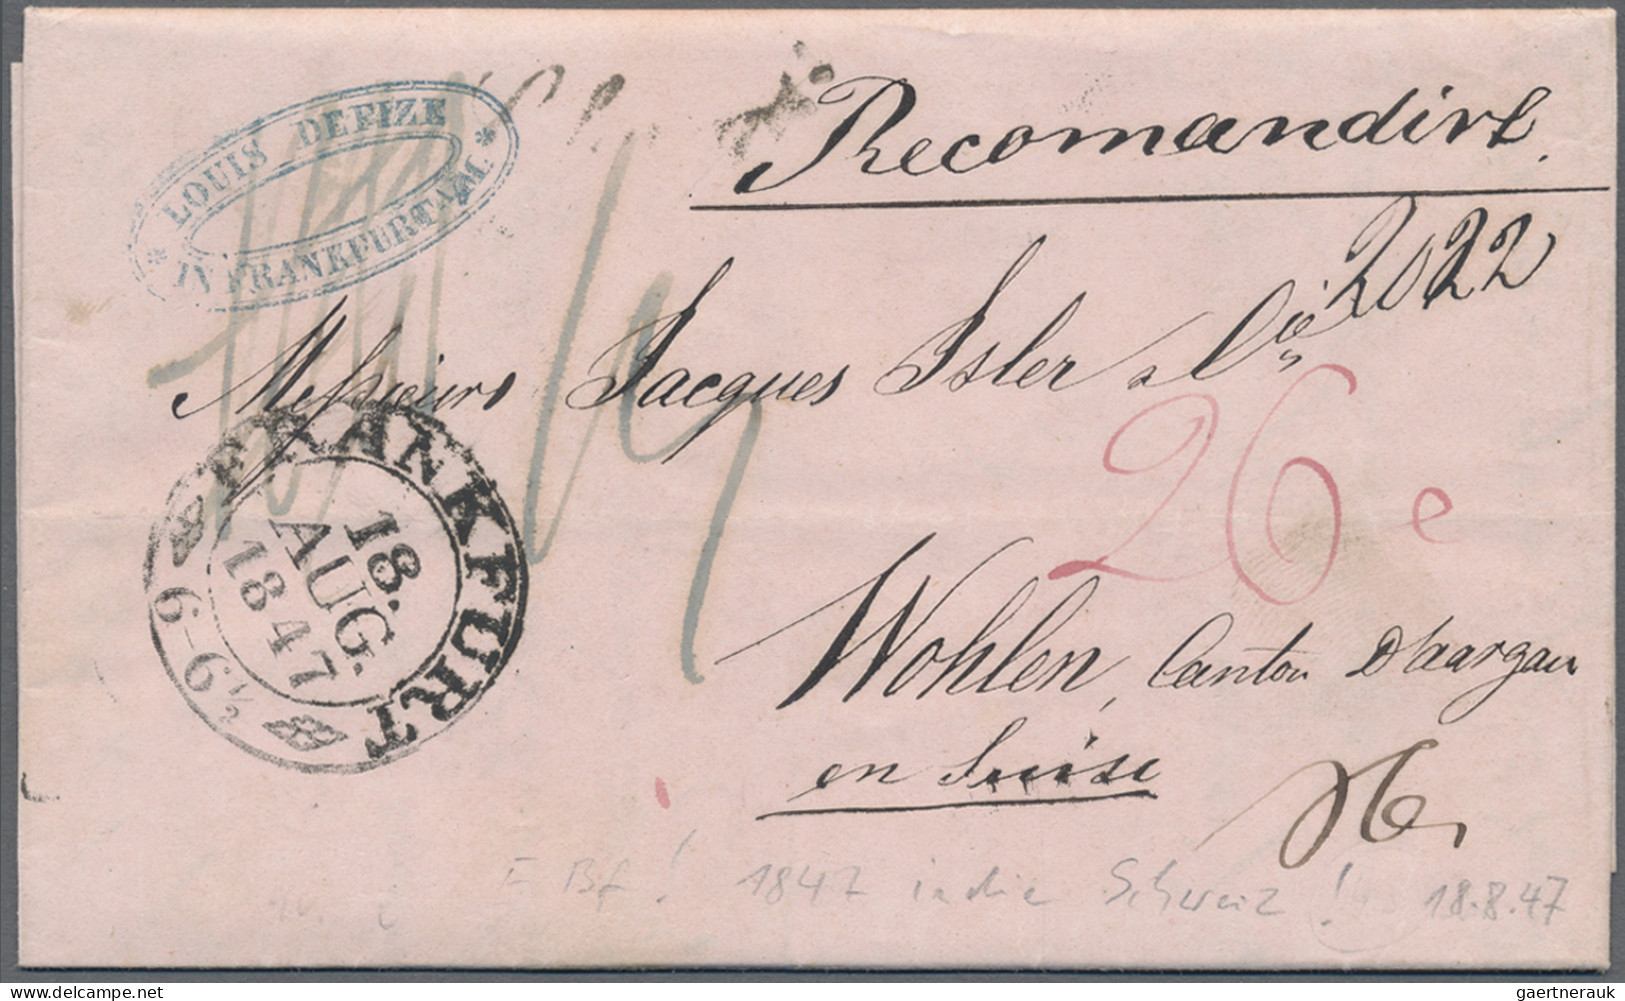 LOUIS DEFIZE
IN FRANKFURT A/M.
Recomandirt.
2022
Messieurs Jacques Isler & Cie
26 e
FRANKFURT
18.
AUG.
1847
6-6½
Wohlen, Canton D'aargau
en Suisse
Bf! 1847 in die Schweiz! 18.8.47
gaertnerauk